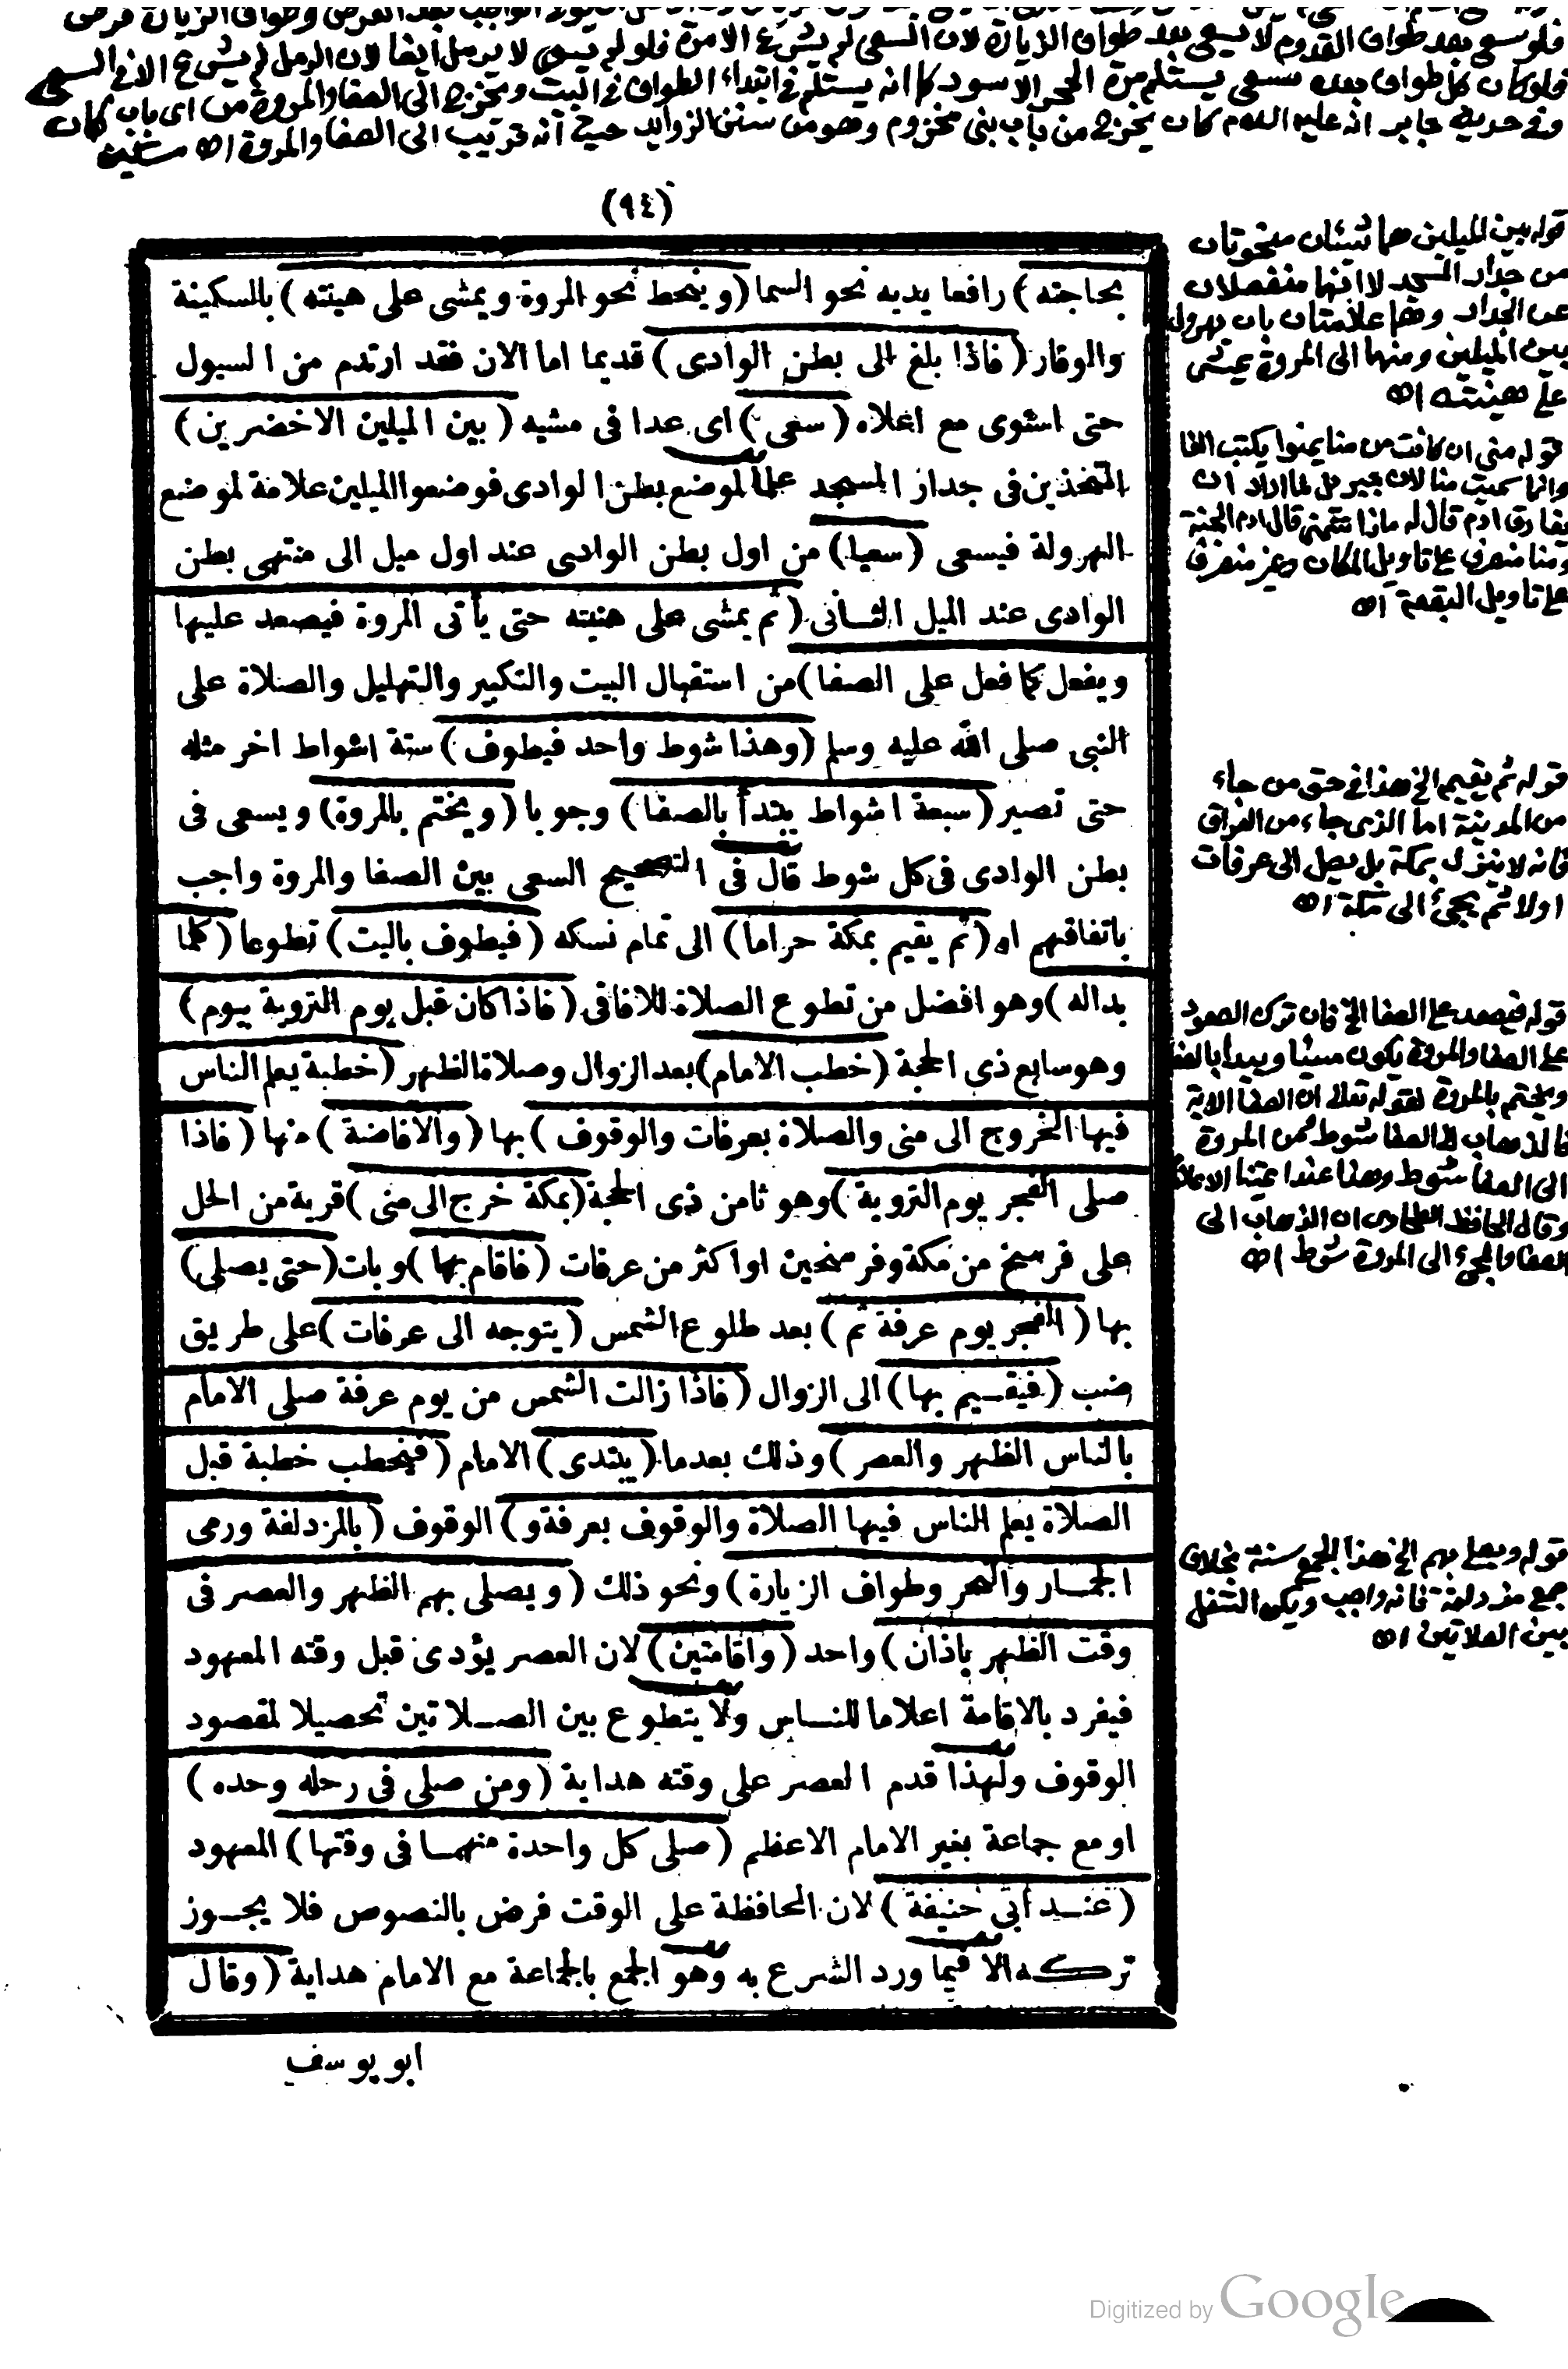 فلو سعى بعد طواف القدوم لا يسعى بعد طواف الزيارة لان السعى لم يشرع الا مرة فلو لم يسع لا يرمل ايضا لان الرمل لم يشرع الا فى السعى
فلو كان كل طواف بعده سعى يستلم مرة الحجر الاسود كما انه يستلم فى ابتداء الطواف فى البيت ويخرج الى الصفا والمروة من اى باب كان
وفى حديث جابر انه عليه السلام كان يخرج من باب بنى مخزوم وهو من سنن الزوايد حيث انه قريب الى الصفا والمروة اه
(٩٤)
بحاجته) رافعا يديه نحو السما (وينحط نحو المروة ويمشى على هينته) بالسكينة
والوقار (فاذا بلغ الى بطن الوادى) قديما اما الان فقد ارتدم من السيول
حتى استوى مع اعلاه (سعى) اى عدا فى مشيه (بين الميلين الاخضرين)
المتخذين فى جدار المسجد علما لموضع بطن الوادى فوضعوا الميلين علامة لموضع
الهرولة فيسعى (سعيا) من اول بطن الوادى عند اول ميل الى منتهى بطن
الوادى عند الميل الثانى (ثم يمشى على هنيته حتى يأتى المروة فيصعد عليها
ويفعل كما فعل على الصفا) من استقبال البيت والتكبير والتهليل والصلاة على
النبى صلى الله عليه وسلم (وهذا شوط واحد فيطوف) ستة اشواط اخر مثله
حتى تصير (سبعة اشواط يبتدأ بالصفا) وجوبا (ويختم بالمروة) ويسعى فى
بطن الوادى فى كل شوط قال فى التصحيح السعى بين الصفا والمروة واجب
باتفاقهم اه (ثم يقيم بمكة حراما) الى تمام نسكه (فيطوف باليت) تطوعا (كلما
بداله) وهو افضل من تطوع الصلاة للافاقى (فاذا كان قبل يوم التروية بيوم)
وهو سابع ذى الحجة (خطب الامام) بعد الزوال وصلاة الظهر (خطبة يعلم الناس
فيها الخروج الى منى والصلاة بعرفات والوقوف) بها (والافاضة) منها (فاذا
صلى الفجر يوم التروية) وهو ثامن ذى الحجة (بمكة خرج الى منى) قرية من الحل
على فرسخ من مكة وفرسخين او اكثر من عرفات (فاقام بها) وبات (حتى يصلى)
بها (الفجر يوم عرفة ثم) بعد طلوع الشمس (يتوجه الى عرفات) على طريق
ضب (فيقيم بها) الى الزوال (فاذا زالت الشمس من يوم عرفة صلى الامام
بالناس الظهر والعصر) وذلك بعدما (يبتدى) الامام (فيخطب خطبة قبل
الصلاة يعلم الناس فيها الصلاة والوقوف بعرفة و) الوقوف (بالمزدلفة ورمى
الجمار والنحر وطواف الزيارة) ونحو ذلك (ويصلى بهم الظهر والعصر فى
وقت الظهر باذان) واحد (واقامتين) لان العصر يؤدى قبل وقته المعهود
فيفرد بالاقامة اعلاما للناس ولا يتطوع بين الصلاتين تحصيلا لمقصود
الوقوف ولهذا قدم العصر على وقته هداية (ومن صلى فى رحله وحده)
او مع جماعة بغير الامام الاعظم (صلى كل واحدة منهما فى وقتها) المعهود
(عند أبى حنيفة) لان المحافظة على الوقت فرض بالنصوص فلا يجوز
تركه الا فيما ورد الشرع به وهو الجمع بالجماعة مع الامام هداية (وقال
ابو يوسف
قوله بين الميلين هما شيئان منحوتان
من جدار المسجد لا انهما منفصلان
عن الجدار وهما علامتان بان يهرول
بين الميلين ومنها الى المروة يمشى
على هينته اه
قوله منى ان كانت من منا يمنوا يكتب الفا
وانما سميت منا لان جبريل لما اراد ان
يفارق ادم قال له ماذا تتمنى قال ادم الجنة
ومنا منصرف على تاويل المكان وغير منصرف
على تاويل البقعة اه
قوله ثم يقيم الخ هذا فى حق من جاء
من المدينة اما الذى جاء من العراق
فانه لا ينزل بمكة بل يصل الى عرفات
اولا ثم يجئ الى مكة اه
قوله فيصعد على الصفا الخ فان ترك الصعود
على الصفا والمروة يكون مسيئا ويبدأ بالصفا
ويختم بالمروة لقوله تعالى ان الصفا الاية
فالذهاب الى الصفا شوط ثم من المروة
الى الصفا شوط وهذا عند ائمتنا الاعلام
وقال الحافظ الطحاوى ان الذهاب الى
الصفا والمجئ الى المروة شوط اه
قوله ويصلى بهم الخ هذا الجمع سنة بخلاف
جمع مزدلفة فانه واجب ويكره التنفل
بين الصلاتين اه
Digitized by Google